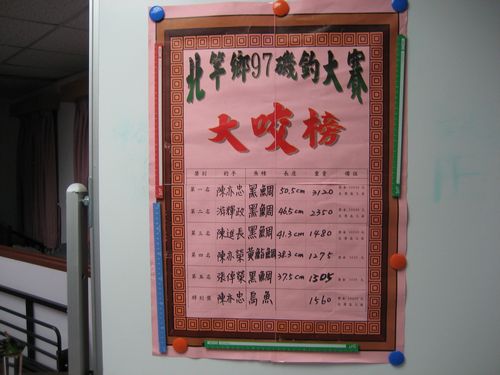 北竿鄉97磯釣大賽
大咬榜
獎別 釣手 魚種 長度 重量 備註
第一名 陳亦忠 黑鯛 50.5cm 3120
第二名 游輝政 黑鯛 46.5cm 2350
第三名 陳進長 黑鯛 41.3cm 1480
第四名 陳亦榮 黃鰭鯛 38.3cm 1275
第五名 張倬榮 黑鯛 37.5cm 1305
特別獎 陳亦忠 烏魚 1560